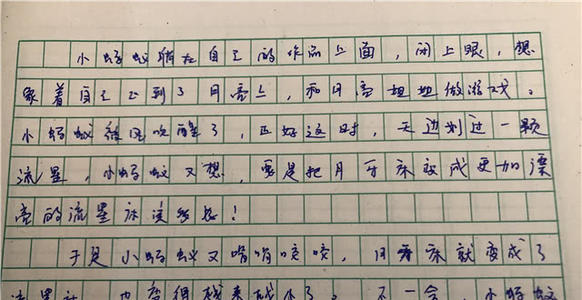 小蚂蚁躺在自己的作品上面，闭上眼，想
象着自己到了月亮上，和月亮姐姐做游戏。
小蚂蚁被风吹醒了，正好这时，天边划过一颗
流星，小蚂蚁又想，要是把月牙床改成更加漂
亮的流星床该多好！
于是小蚂蚁又啃啃咬咬，月牙床就变成了
流星床，也变得越来越小了。不一会，小蚂蚁